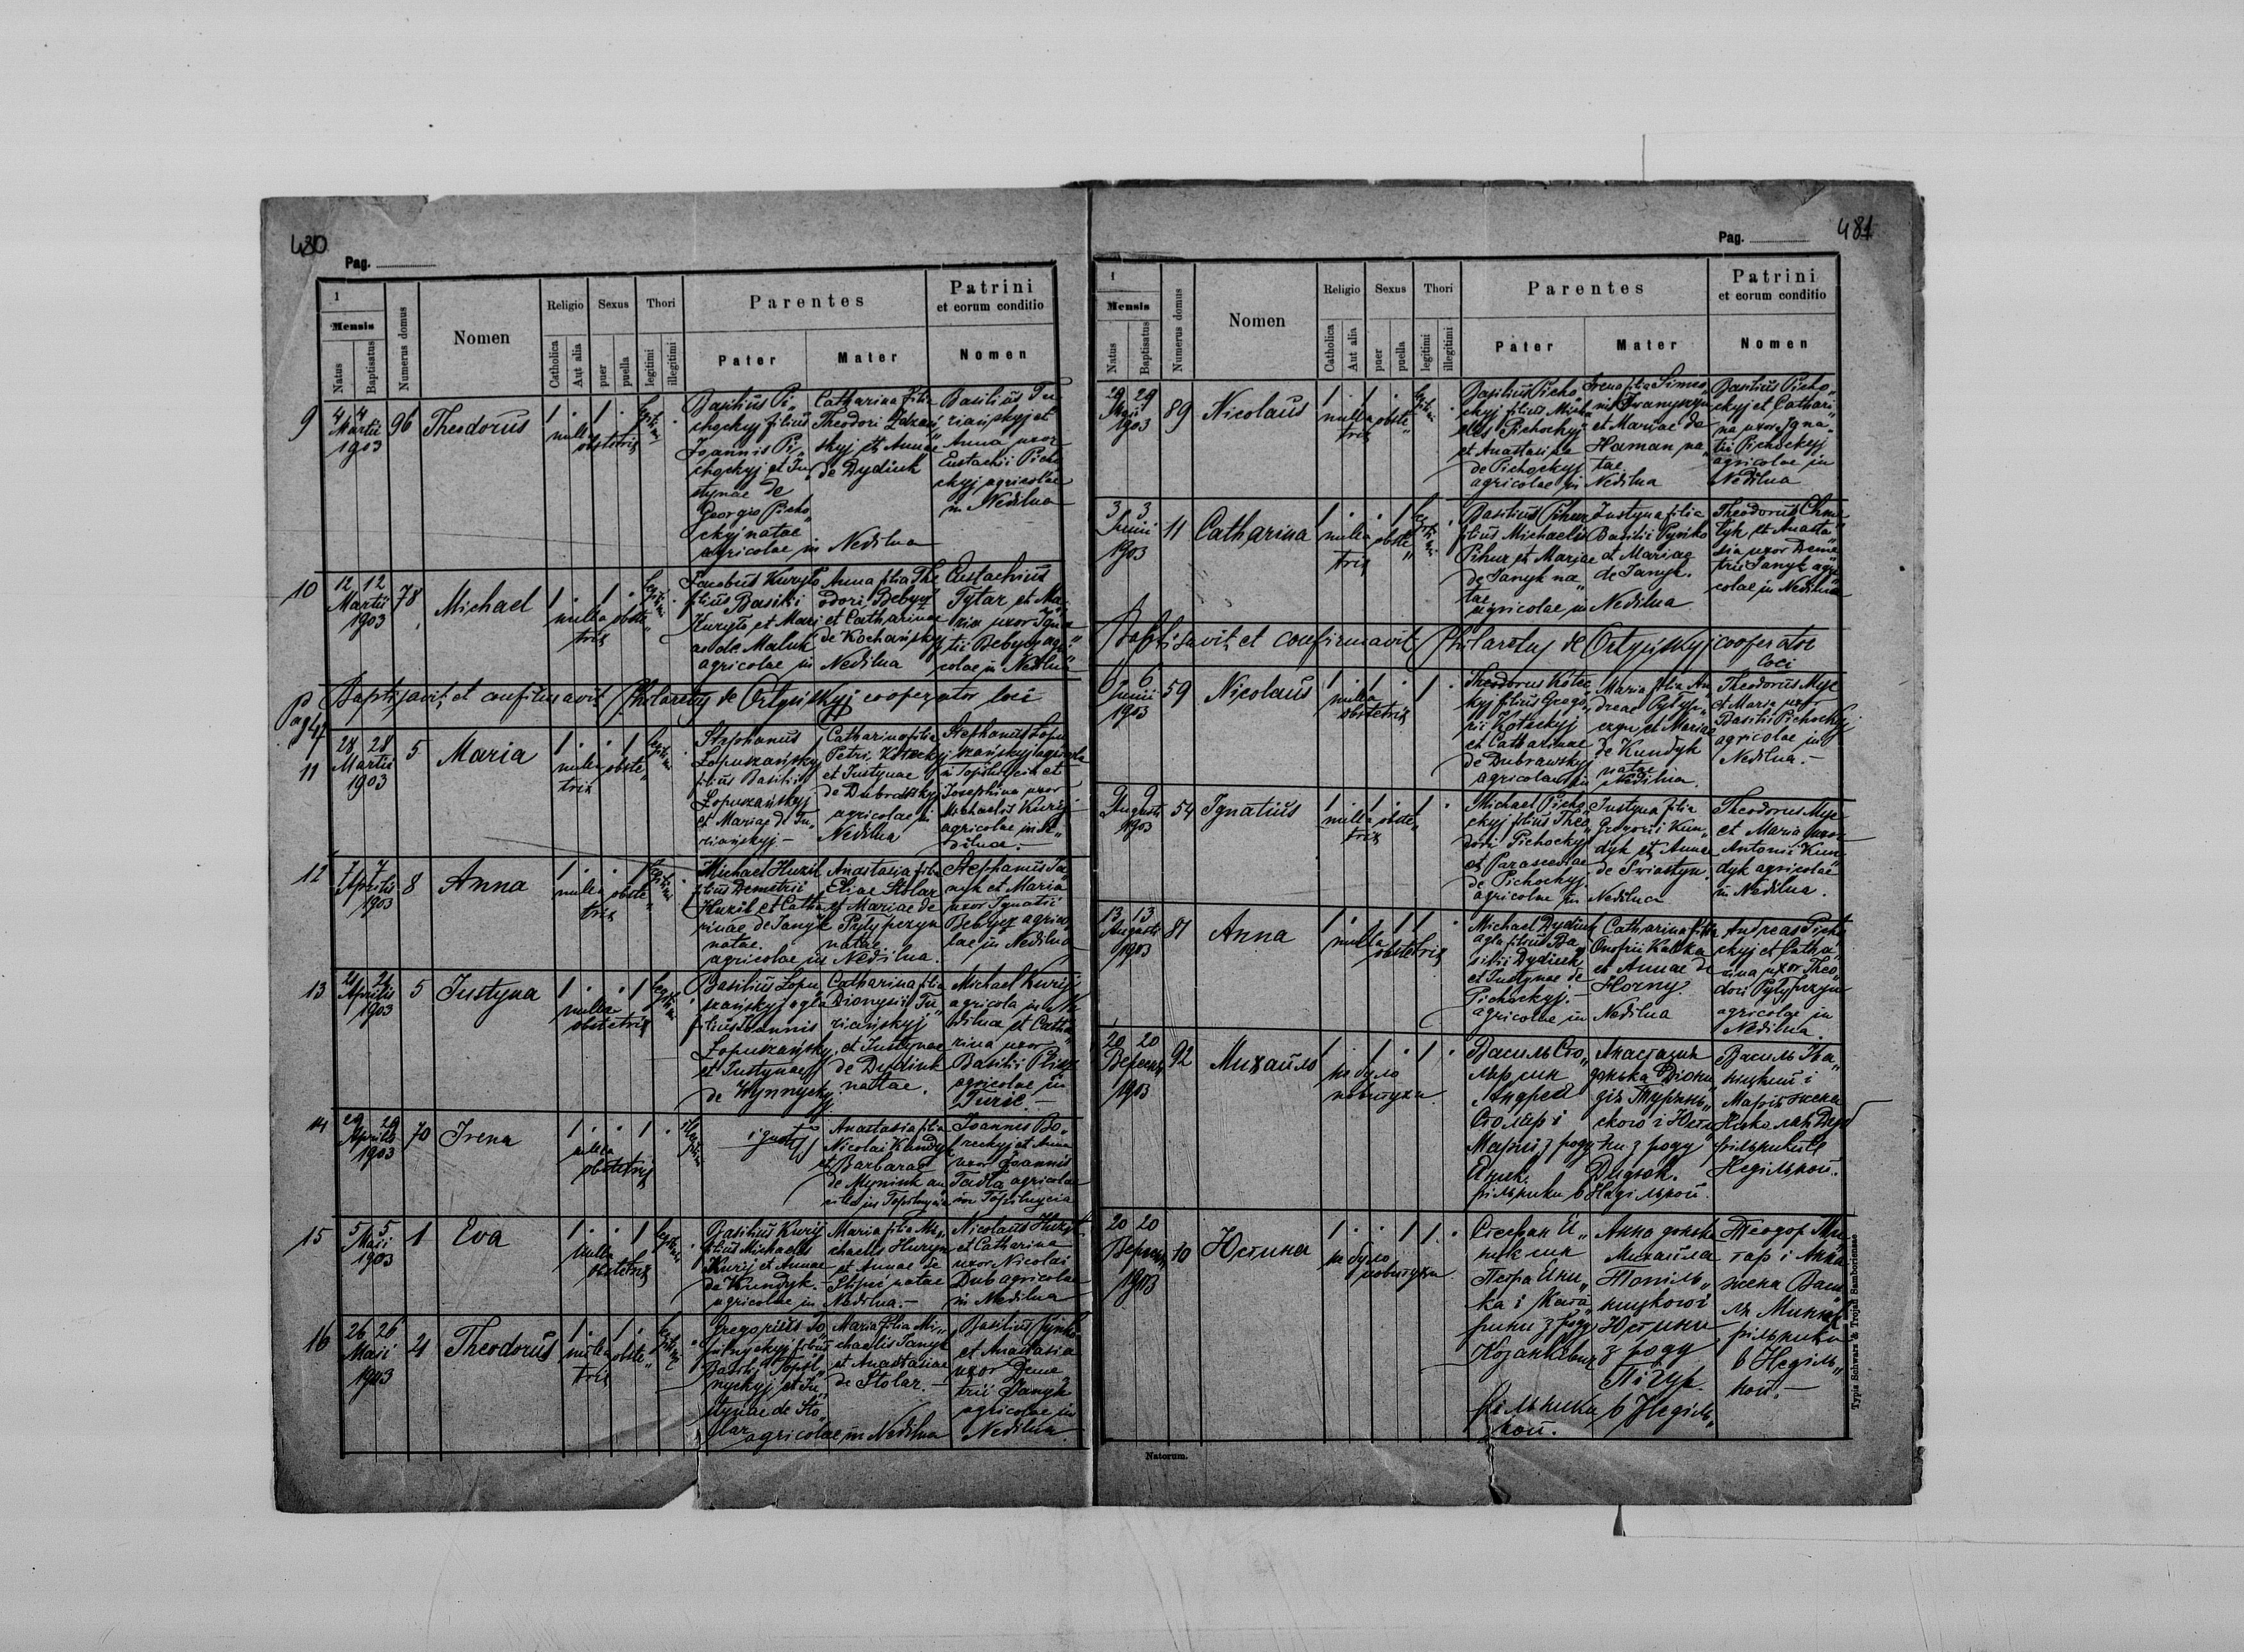 480
Pag.
1
Mensis
Natus
Baptisatus
Numerus domus
Nomen
Religio
Catholica
Aut alia
Sexus
puer
puella
Thori
legitimi
illegitimi
Parentes
Pater
Mater
Patrini
et eorum conditio
Nomen
9
4 4
Martii
1903
96
Theodorus
1 . 1 .
nulla
obstetrix
Basilius Pi„
chockyj filius
Joannis Pi„
chockyj et Ju„
stynae de
Georgio Picho„
ckyj natae
agricolae in Nedilna
Catharina filia
Theodori
skyj et Annae
de Dydiuk
Basilius Tu„
riańskyj et
Anna uxor
Eustachii Picho
ckyj agricolae
in Nedilna
10
12 12
Martii
1903
78
Michael
1 . 1 .
nulla obste„
trix
Jacobus Kuryło
filius Basilii
Kuryło et Mari
ae de Maluk
agricolae in Nedilna
Anna filia The
odori Bebysz
et Catharinae
de Kochańskyj
Eustachius
Tytar et Ma„
ria uxor Igna
tii Bebysz agri„
colae in Nedilna
Baptisavit et confirmavit Philaretus de Ortyńskyj cooperator loci
Pag 47
11
28 28
Martii
1903
5
Maria
1 . . 1
nulla obste„
trix
Stephanus
Łopuszańskyj
filius Basilii
Łopuszańskyj
et Mariae de Tu„
riańskyj –
Catharina filia
Petri Koteckyj
et Justynae
de Dubrawskyj
agricolae in
Nedilna
Stephanus Łopu
szańskyj agricola
in Topilnycia et
Josephina uxor
Michaelis Kuryj
agricolae in Ne„
dilna. –
12
7 7
Aprilis
1903
8
Anna
1 . . 1
nulla obste„
trix
Michael Huzil
filius Demetrii
Huzil et Catha
rinae de Janyk
natae.
agricolae in Nedilna.
Anastasia filia
Eliae Stolar
et Mariae de
Pytypczyn
natae
Stephanus Ja
nyk et Maria
uxor Ignatii
Bebysz agrico
lae in Nedilna
13
Aprilis
1903
5
Justyna
1 . . 1
nulla
obstetrix
Basilius Łopu„
szańskyj agla
filius Joannis
Łopuszańskyj
et Justynae
de Wynnyckyj
Catharina filia
Dionysii Tu„
riańskyj
et Justynae
de Dydiuk
natae.
Michael Kuryj
agricola in Ne
dilna et Catha„
rina uxor
Basilii Plisz
agricolae in
Turie. –
14
29 29
Aprilis
1903
70
Irena
1 . . 1
nulla
obstetrix
Anastasia filia
Nicolai Kundyk
et Barbarae
de Myniuk an
cilla in Topilnycia
Joannis Bo„
reckyj et Anna
uxor Joannis
Tadla agricolae
in Topilnycia
15
5 5
Maii
1903
1
Eva
1 . . 1
nulla
obstetrix
Basilius Kuryj
filius Michaelis
Kuryj et Annae
de Kundyk. –
agricolae in Nedilna. –
Maria filia Mi„
chaelis Huryn
et Annae de
natae
Nicolaus
et Catharina
uxor Nicolai
Dub agricolae
in Nedilna
16
26 26
Maii
1903
21
Theodorus
1 . 1 .
nulla obste„
trix
Gregorius To„
pilnyckyj filius
Basilii Topil„
nyckyj et Ju„
stynae de Sto„
lar
agricolae in Nedilna
Maria filia Mi„
chaelis Janyk
et Anastasiae
de Stolar. –
Basilius Pyńko
et Anastasia
uxor Deme„
trii Janyk
agricolae in
Nedilna.
481
Pag.
1
Mensis
Natus
Baptisatus
Numerus domus
Nomen
Religio
Catholica
Aut alia
Sexus
puer
puella
Thori
legitimi
illegitimi
Parentes
Pater
Mater
Patrini
et eorum conditio
Nomen
29 29
Maii
1903
89
Nicolaus
1 . 1 .
nulla obste„
trix
Basilius Picho„
ckyj filius Micha
elis Pichockyj
et Anastasiae
de Pichockyj
agricolae in Nedilna
Irena filia Simeo„
nis Iwanyszyn
et Mariae de
Haman na„
tae.
Basilius Picho„
ckyj et Cathari„
na uxor Igna„
tii Pichockyj
agricolae in
Nedilna
3 3
Junii
1903
11
Catharina
1 . . 1
nulla obste„
trix
Basilius Pihur
filius Michaelis
Pihur et Mariae
de Janyk na„
tae
agricolae in Nedilna
Justyna filia
Basilii Pyńko
et Mariae
de Janyk.
Theodorus Chme
lyk et Anasta„
sia uxor Deme„
trii Janyk agri„
colae in Nedilna
Baptisavit et confirmavit Philaretus de Ortyńskyj cooperator
loci
6 6
Junii
1903
59
Nicolaus
1 . 1 . 1 .
nulla
obstetrix
Theodorus Kotec„
kyj filius Grego„
rii Koteckyj
et Catharinae
de Dubrawskyj
agricolae in Nedilna.
Maria filia An„
dreae Pytyp„
czyn et Mariae
de Kundyk
natae
Theodorus Mysc
et Maria uxor
Basilii Pichockyj
agricolae in
Nedilna. –
9 9
Augusti
1903
54
Ignatius
1 . 1 . 1 .
nulla obste„
trix
Michael Picho„
ckyj filius Theo„
dori Pichockyj
et Parasceviae
de Pichockyj.
agricolae in Nedilna
Justyna filia
Gregorii Kun„
dyk et Annae
de Swiastyn.
Theodorus Mysc
et Maria uxor
Antonii Kun„
dyk agricolae
in Nedilna.
13 13
Augusti
1903
87
Anna
1 . . 1 1 .
nulla
obstetrix
Michael Dydiuk
agla filius Ba„
silii Dydiuk
et Justynae de
Pichockyj. –
agricolae in Nedilna
Catharina filia
Onufrii Kałka
et Annae de
Horny.
Andreas Picho
ckyj et Catha„
rina uxor Theo„
dori Pytypczyn
agricolae in
Nedilna.
20 20
Вересня
1903
92
Михайло
1 . 1 . 1 .
не було
повитухи.
Василь Сто„
ляр син
Андрея
Столяр і
Марії з роду
Еник.
рільники в Недільной.
Анастазия
донька Діони„
зія Турянь„
ского і Юсти
ни з роду
Дидюк.
Василь Іва„
ницкий і
Марія жена
Николая
рільники в
Недільной.
20 20
Вересня
1903
10
Юстина
1 . . 1 1 .
не було
повитухи
Стефан Е„
ник син
Петра Ени„
ка і Ката„
рини з роду
Козанкевич
рільники в Неділь„
ной.
Анна донька
Михайла
Топіль„
ницкого і
Юстини
з роду
Пігур.
Теодор Ти
тар і Анна
жена Васи
ля
рільники
в Неділь„
ной. –
Natorum.
Typis Schwarz & Trojan Samboriensae